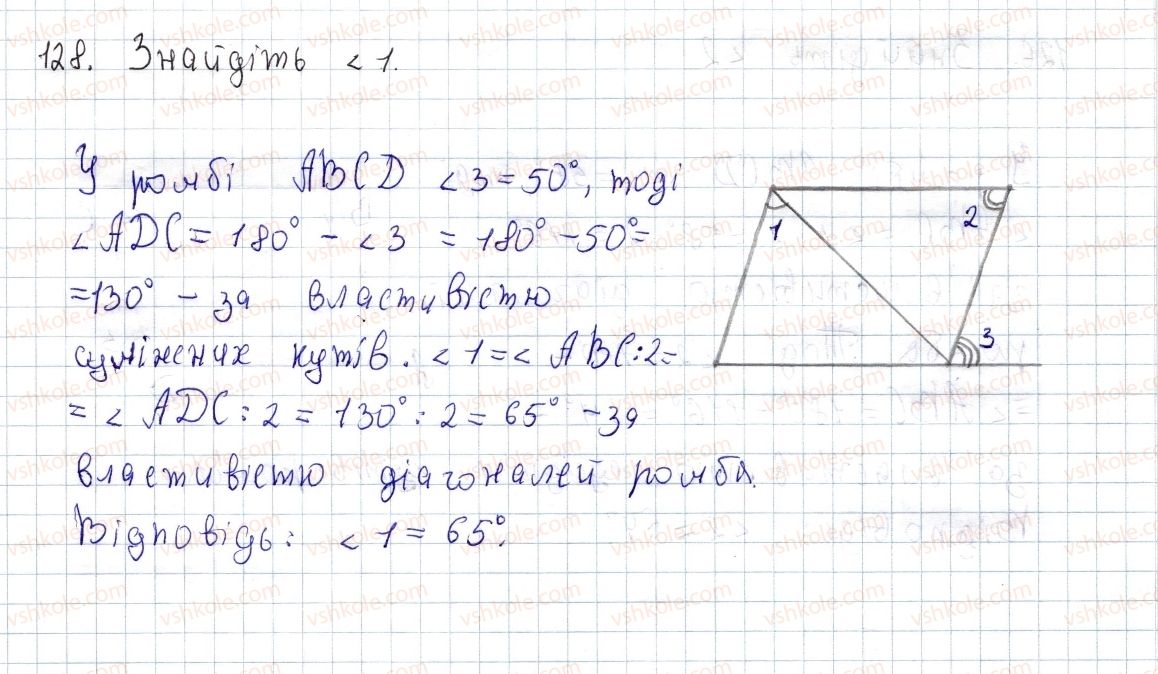 128. Знайдіть < 1.
У ромбі ABCD < 3 = 50°, тоді
< ADC = 180° - < 3 = 180° - 50° =
= 130° - за властивістю
суміжних кутів. < 1 = < ABC : 2 =
= < ADC : 2 = 130° : 2 = 65° - за
властивістю діагоналей ромба.
Відповідь: < 1 = 65°.
1
2
3
vshkole.com